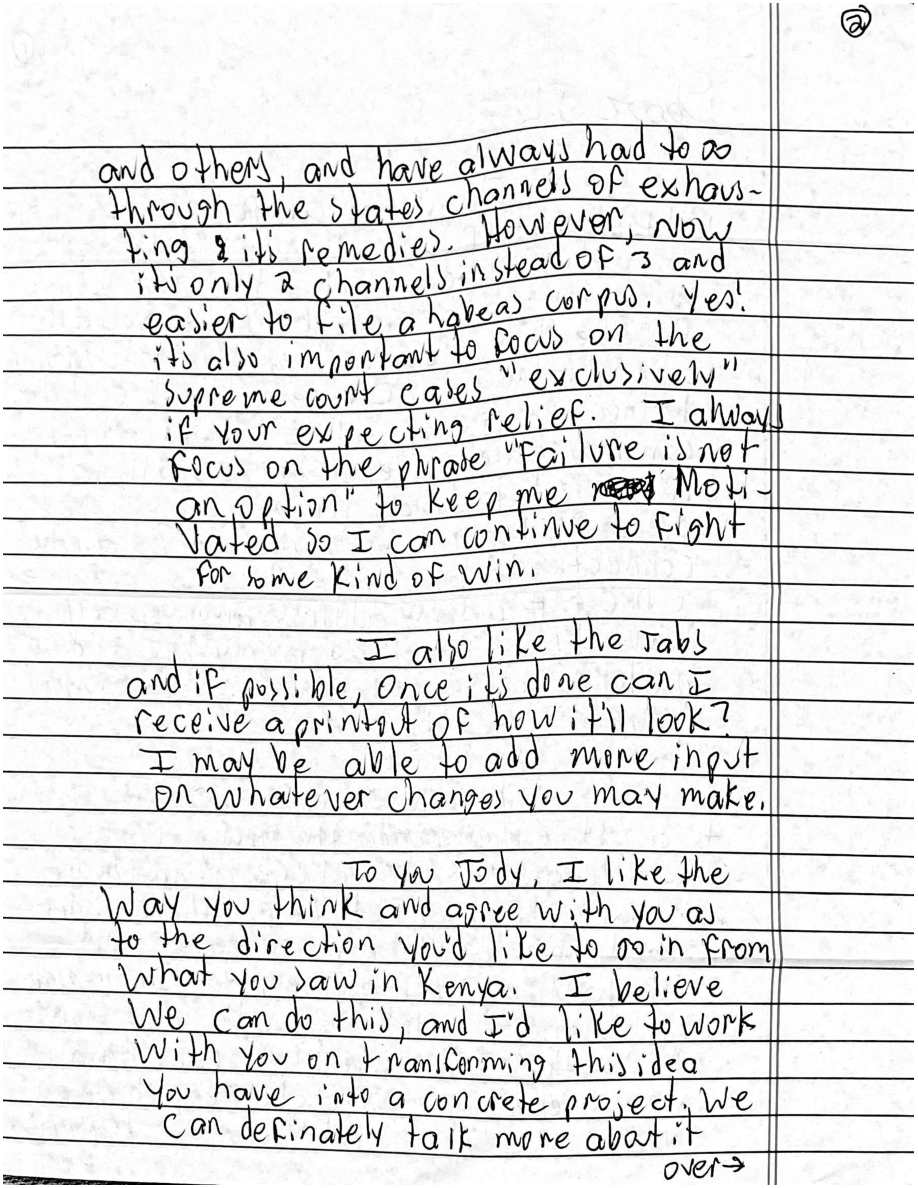 ②
and others, and have always had to go
through the states channels of exhaus-
ting & its remedies. However, Now
it's only 2 channels instead of 3 and
easier to file a habeas corpus. Yes!
it's also important to focus on the
supreme court cases "exclusively"
if your expecting relief. I always
focus on the phrase "Failure is not
an option" to keep me Moti-
vated so I can continue to fight
for some kind of win.
I also like the Tabs
and if possible, once it's done can I
receive a printout of how it'll look?
I may be able to add more input
on whatever changes you may make.
To you Jody, I like the
way you think and agree with you as
to the direction you'd like to go in from
what you saw in Kenya. I believe
We can do this, and I'd like to work
with you on transforming this idea
you have into a concrete project. We
can definately talk more about it
over→